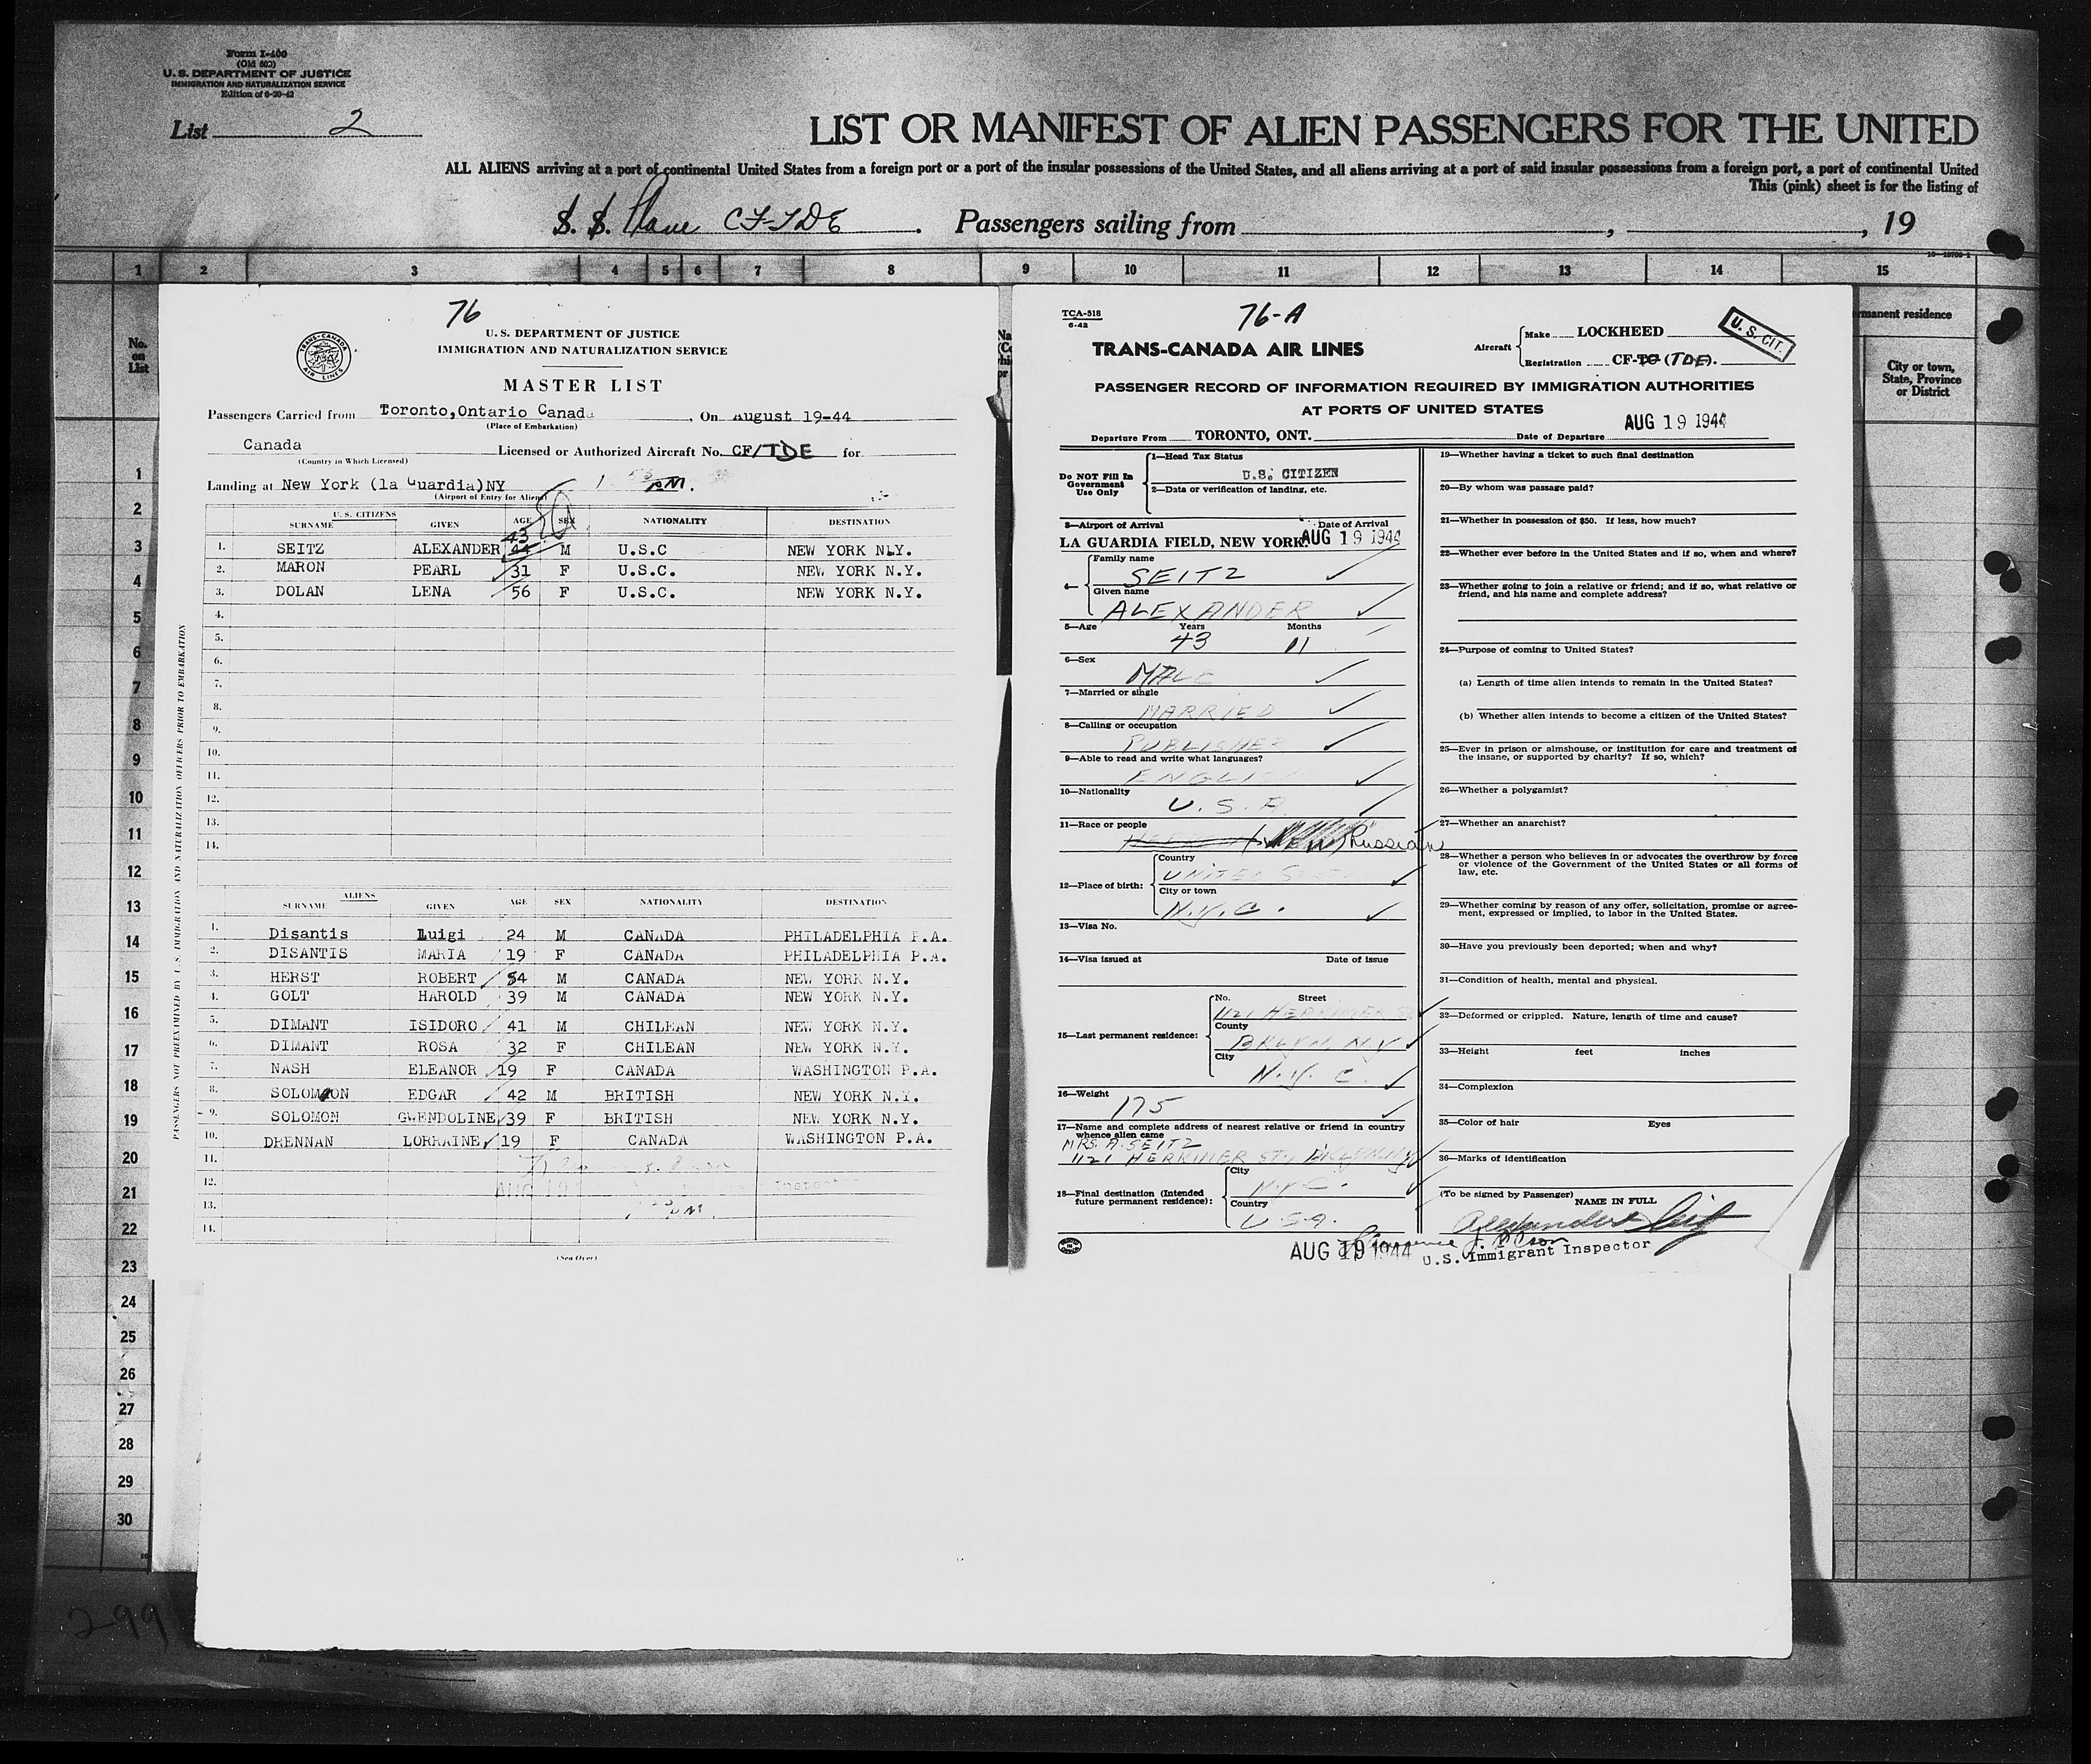 Form I-400
(Old 500)
U. S. DEPARTMENT OF JUSTICE
IMMIGRATION AND NATURALIZATION SERVICE
Edition of 6-20-42
List 2
LIST OR MANIFEST OF ALIEN PASSENGERS FOR THE UNITED
ALL ALIENS arriving at a port of continental United States from a foreign port or a port of the insular possessions of the United States, and all aliens arriving at a port of said insular possessions from a foreign port, a port of continental United
This (pink) sheet is for the listing of
S. S. Plane CF-TDE . Passengers sailing from , , 19
1 2 3 4 5 6 7 8 9 10 11 12 13 14 15
No. on List
manent residence
City or town, State, Province or District
1
2
3
4
5
6
7
8
9
10
11
12
13
14
15
16
17
18
19
20
21
22
23
24
25
26
27
28
29
30
299
76
TRANS-CANADA AIR LINES
U. S. DEPARTMENT OF JUSTICE
IMMIGRATION AND NATURALIZATION SERVICE
MASTER LIST
Passengers Carried from Toronto,Ontario Canada , On August 19-44
(Place of Embarkation)
Canada Licensed or Authorized Aircraft No. CF/TDE for
(Country in Which Licensed)
Landing at New York (la Guardia)NY 1 PM.
(Airport of Entry for Aliens)
U. S. CITIZENS
SURNAME GIVEN AGE SEX NATIONALITY DESTINATION
43
1. SEITZ ALEXANDER 44 M U.S.C NEW YORK NLY.
2. MARON PEARL 31 F U.S.C. NEW YORK N.Y.
3. DOLAN LENA 56 F U.S.C. NEW YORK N.Y.
4.
5.
6.
7.
8.
9.
10.
11.
12.
13.
14.
ALIENS
SURNAME GIVEN AGE SEX NATIONALITY DESTINATION
1. Disantis Luigi 24 M CANADA PHILADELPHIA P.A.
2. DISANTIS MARIA 19 F CANADA PHILADELPHIA P.A.
3. HERST ROBERT 54 M CANADA NEW YORK N.Y.
4. GOLT HAROLD 39 M CANADA NEW YORK N.Y.
5. DIMANT ISIDORO 41 M CHILEAN NEW YORK N.Y.
6. DIMANT ROSA 32 F CHILEAN NEW YORK N.Y.
7. NASH ELEANOR 19 F CANADA WASHINGTON P.A.
8. SOLOMON EDGAR 42 M BRITISH NEW YORK N.Y.
9. SOLOMON GWENDOLINE 39 F BRITISH NEW YORK N.Y.
10. DRENNAN LORRAINE 19 F CANADA WASHINGTON P.A.
11.
12. AUG 19 Inspector
13. PM.
14.
(See Over)
PASSENGERS NOT PREEXAMINED BY U. S. IMMIGRATION AND NATURALIZATION OFFICERS PRIOR TO EMBARKATION
TCA-518
6-42
76-A
TRANS-CANADA AIR LINES
Aircraft Make LOCKHEED
Registration CF-TC (TDE).
U. S. CIT.
PASSENGER RECORD OF INFORMATION REQUIRED BY IMMIGRATION AUTHORITIES
AT PORTS OF UNITED STATES
Departure From TORONTO, ONT. Date of Departure AUG 19 1944
Do NOT Fill In Government Use Only
1—Head Tax Status
U.S. CITIZEN
2—Data or verification of landing, etc.
3—Airport of Arrival Date of Arrival
LA GUARDIA FIELD, NEW YORK. AUG 19 1944
4— Family name
SEITZ
Given name
ALEXANDER
5—Age Years Months
43 11
6—Sex
MALE
7—Married or single
MARRIED
8—Calling or occupation
PUBLISHER
9—Able to read and write what languages?
ENGLISH
10—Nationality
U.S.A.
11—Race or people
Russian
12—Place of birth: Country
UNITED STATES
City or town
N.Y.C.
13—Visa No.
14—Visa issued at Date of issue
15—Last permanent residence: No. Street
1121 HERKIMER ST
County
BKLYN, N.Y
City
N.Y.C.
16—Weight
175
17—Name and complete address of nearest relative or friend in country whence alien came
MRS. A. SEITZ
1121 HERKIMER ST, BKLYN NY
18—Final destination (Intended future permanent residence): City
N.Y.C.
Country
U.S.A.
19—Whether having a ticket to such final destination
20—By whom was passage paid?
21—Whether in possession of $50. If less, how much?
22—Whether ever before in the United States and if so, when and where?
23—Whether going to join a relative or friend; and if so, what relative or friend, and his name and complete address?
24—Purpose of coming to United States?
(a) Length of time alien intends to remain in the United States?
(b) Whether alien intends to become a citizen of the United States?
25—Ever in prison or almshouse, or institution for care and treatment of the insane, or supported by charity? If so, which?
26—Whether a polygamist?
27—Whether an anarchist?
28—Whether a person who believes in or advocates the overthrow by force or violence of the Government of the United States or all forms of law, etc.
29—Whether coming by reason of any offer, solicitation, promise or agreement, expressed or implied, to labor in the United States.
30—Have you previously been deported; when and why?
31—Condition of health, mental and physical.
32—Deformed or crippled. Nature, length of time and cause?
33—Height feet inches
34—Complexion
35—Color of hair Eyes
36—Marks of identification
(To be signed by Passenger) NAME IN FULL
Alexander Seitz
AUG 19 1944
U.S. Immigrant Inspector